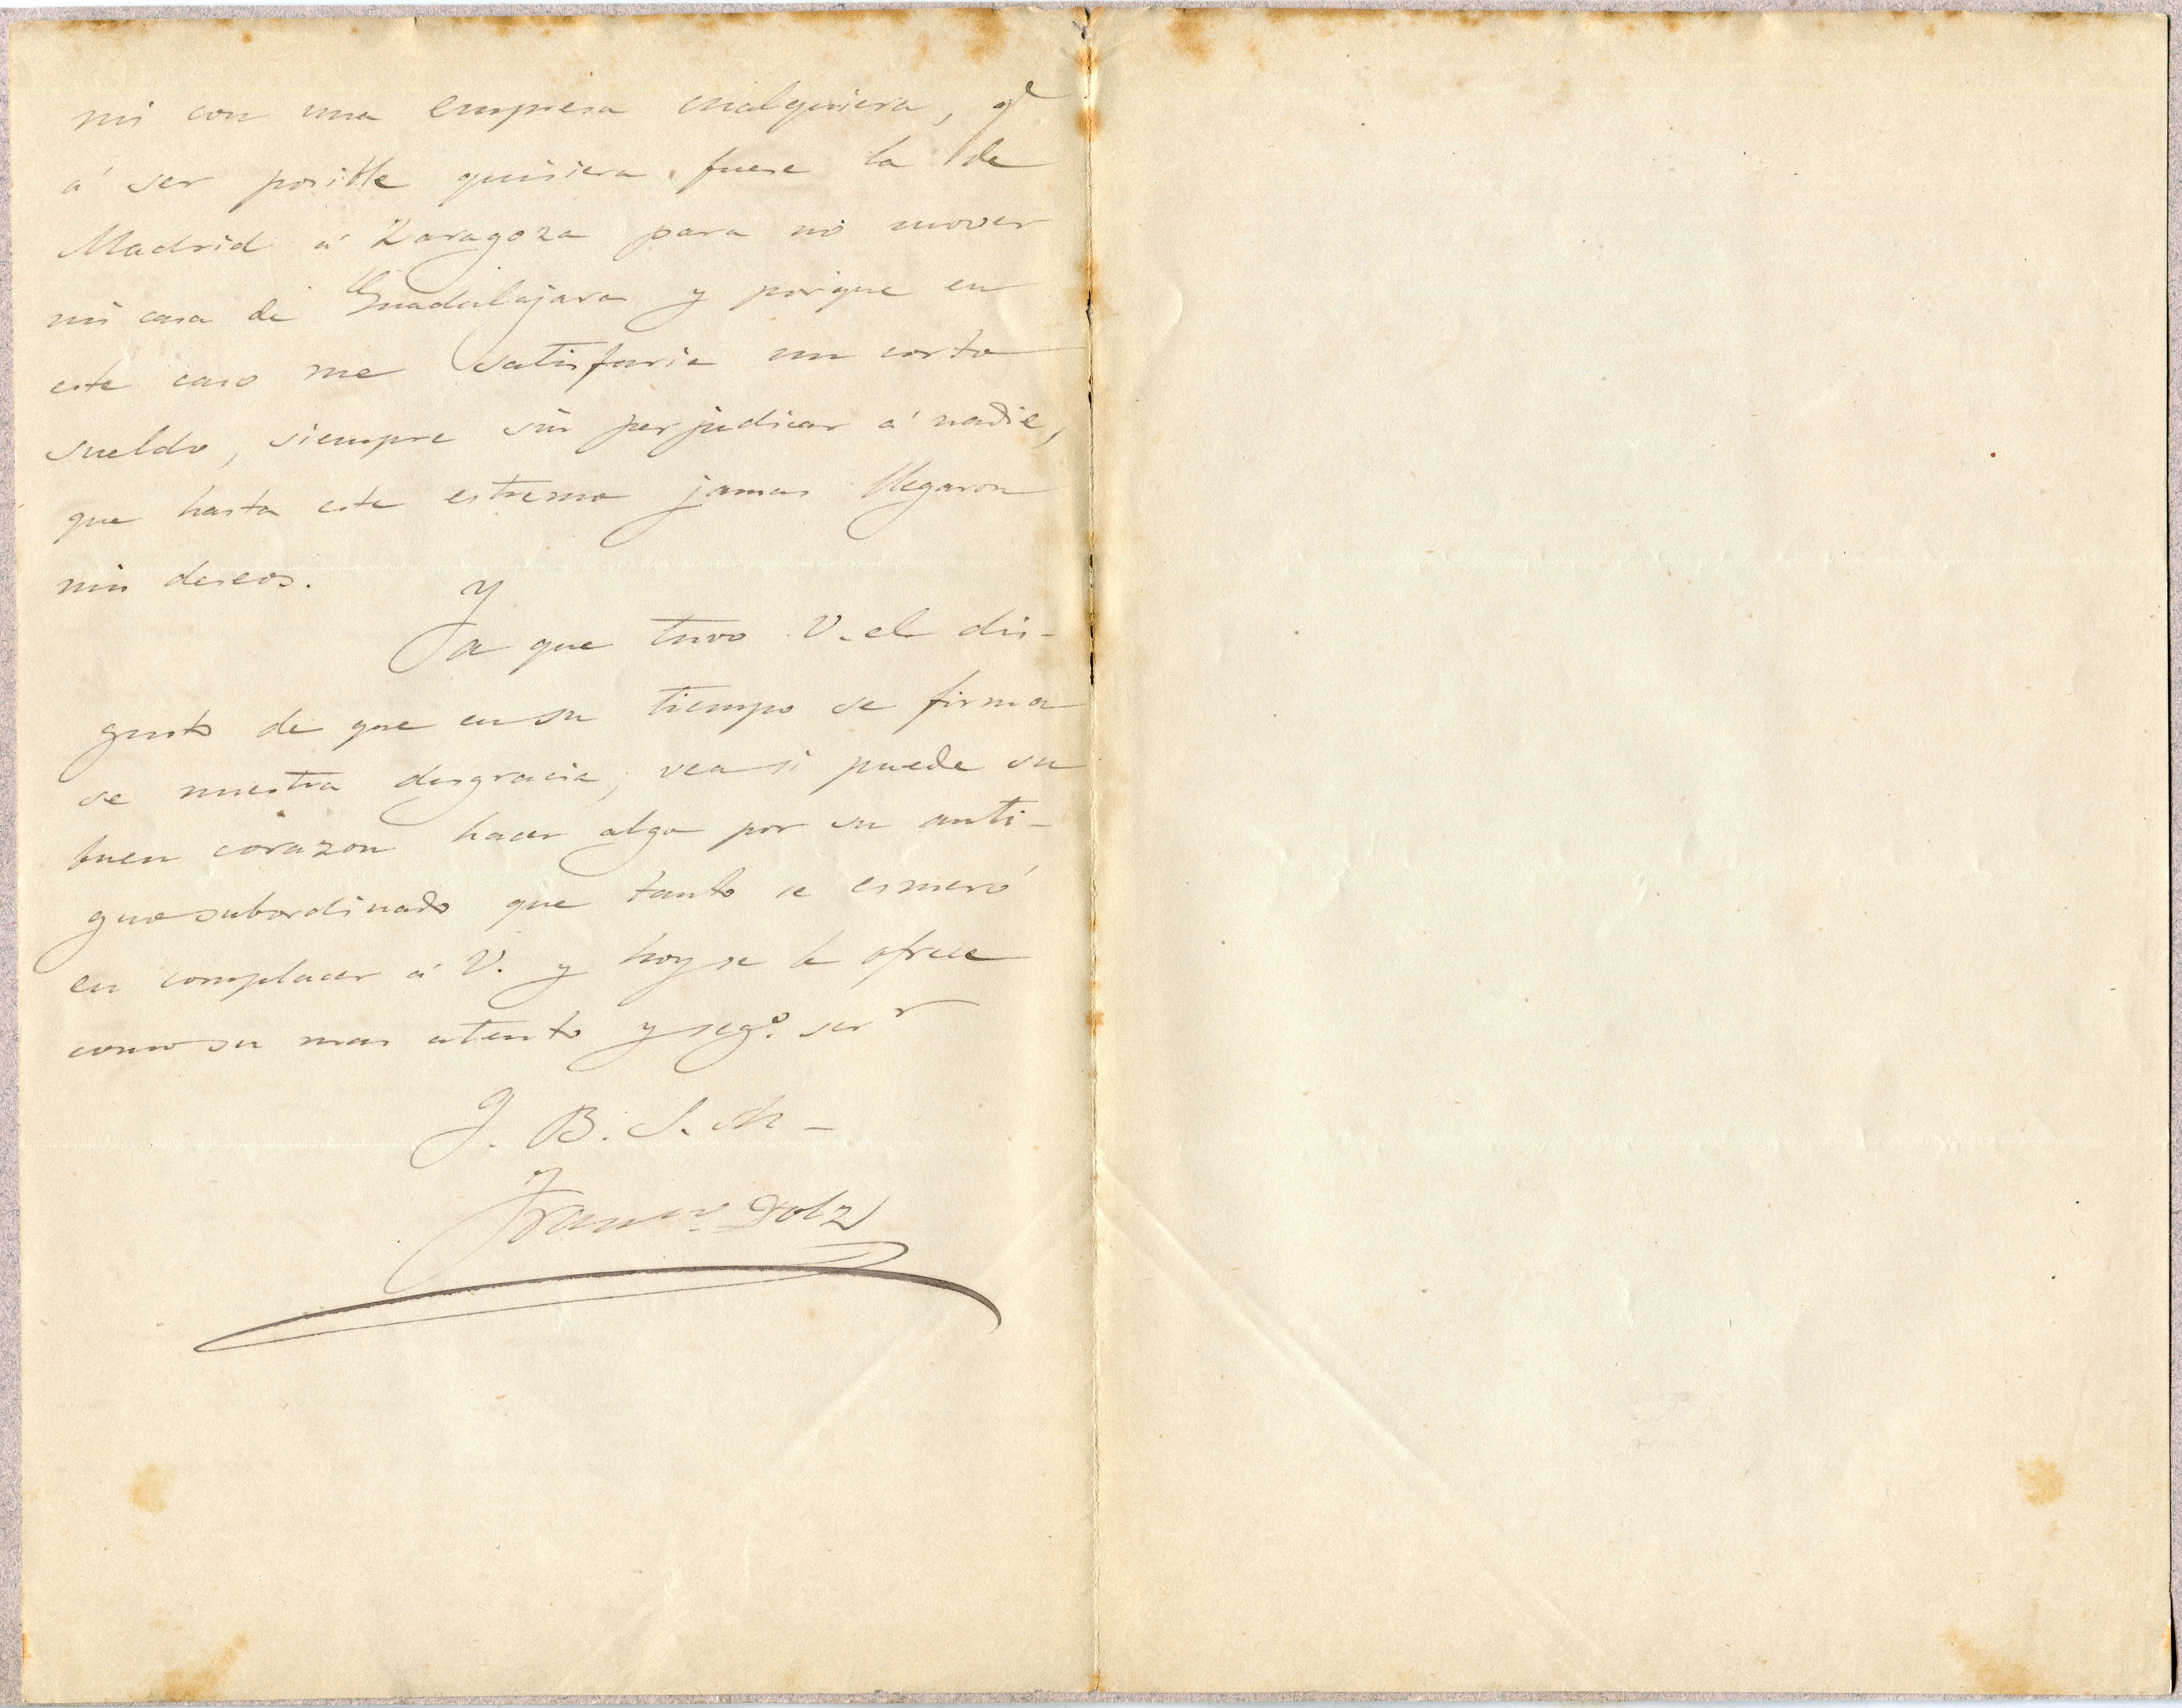 mi con una empresa cualquiera, qe
á ser posible quisiera fuese la de
Madrid á Zaragoza para no mover
mi casa de Guadalajara y porque en
este caso me satisfaria un corto
sueldo, siempre sin perjudicar á nadie,
que hasta este estremo jamas llegaron
mis deseos.
Ya que tuvo V. el dis-
gusto de que en su tiempo se firma
se nuestra desgracia, vea si puede su
buen corazon hacer algo por su anti-
guo subordinado que tanto se esmeró
en complacer á V. y hoy se le ofrece
como su mas atento y sego. serr
Q. B. S. M-
Franco. Dolz